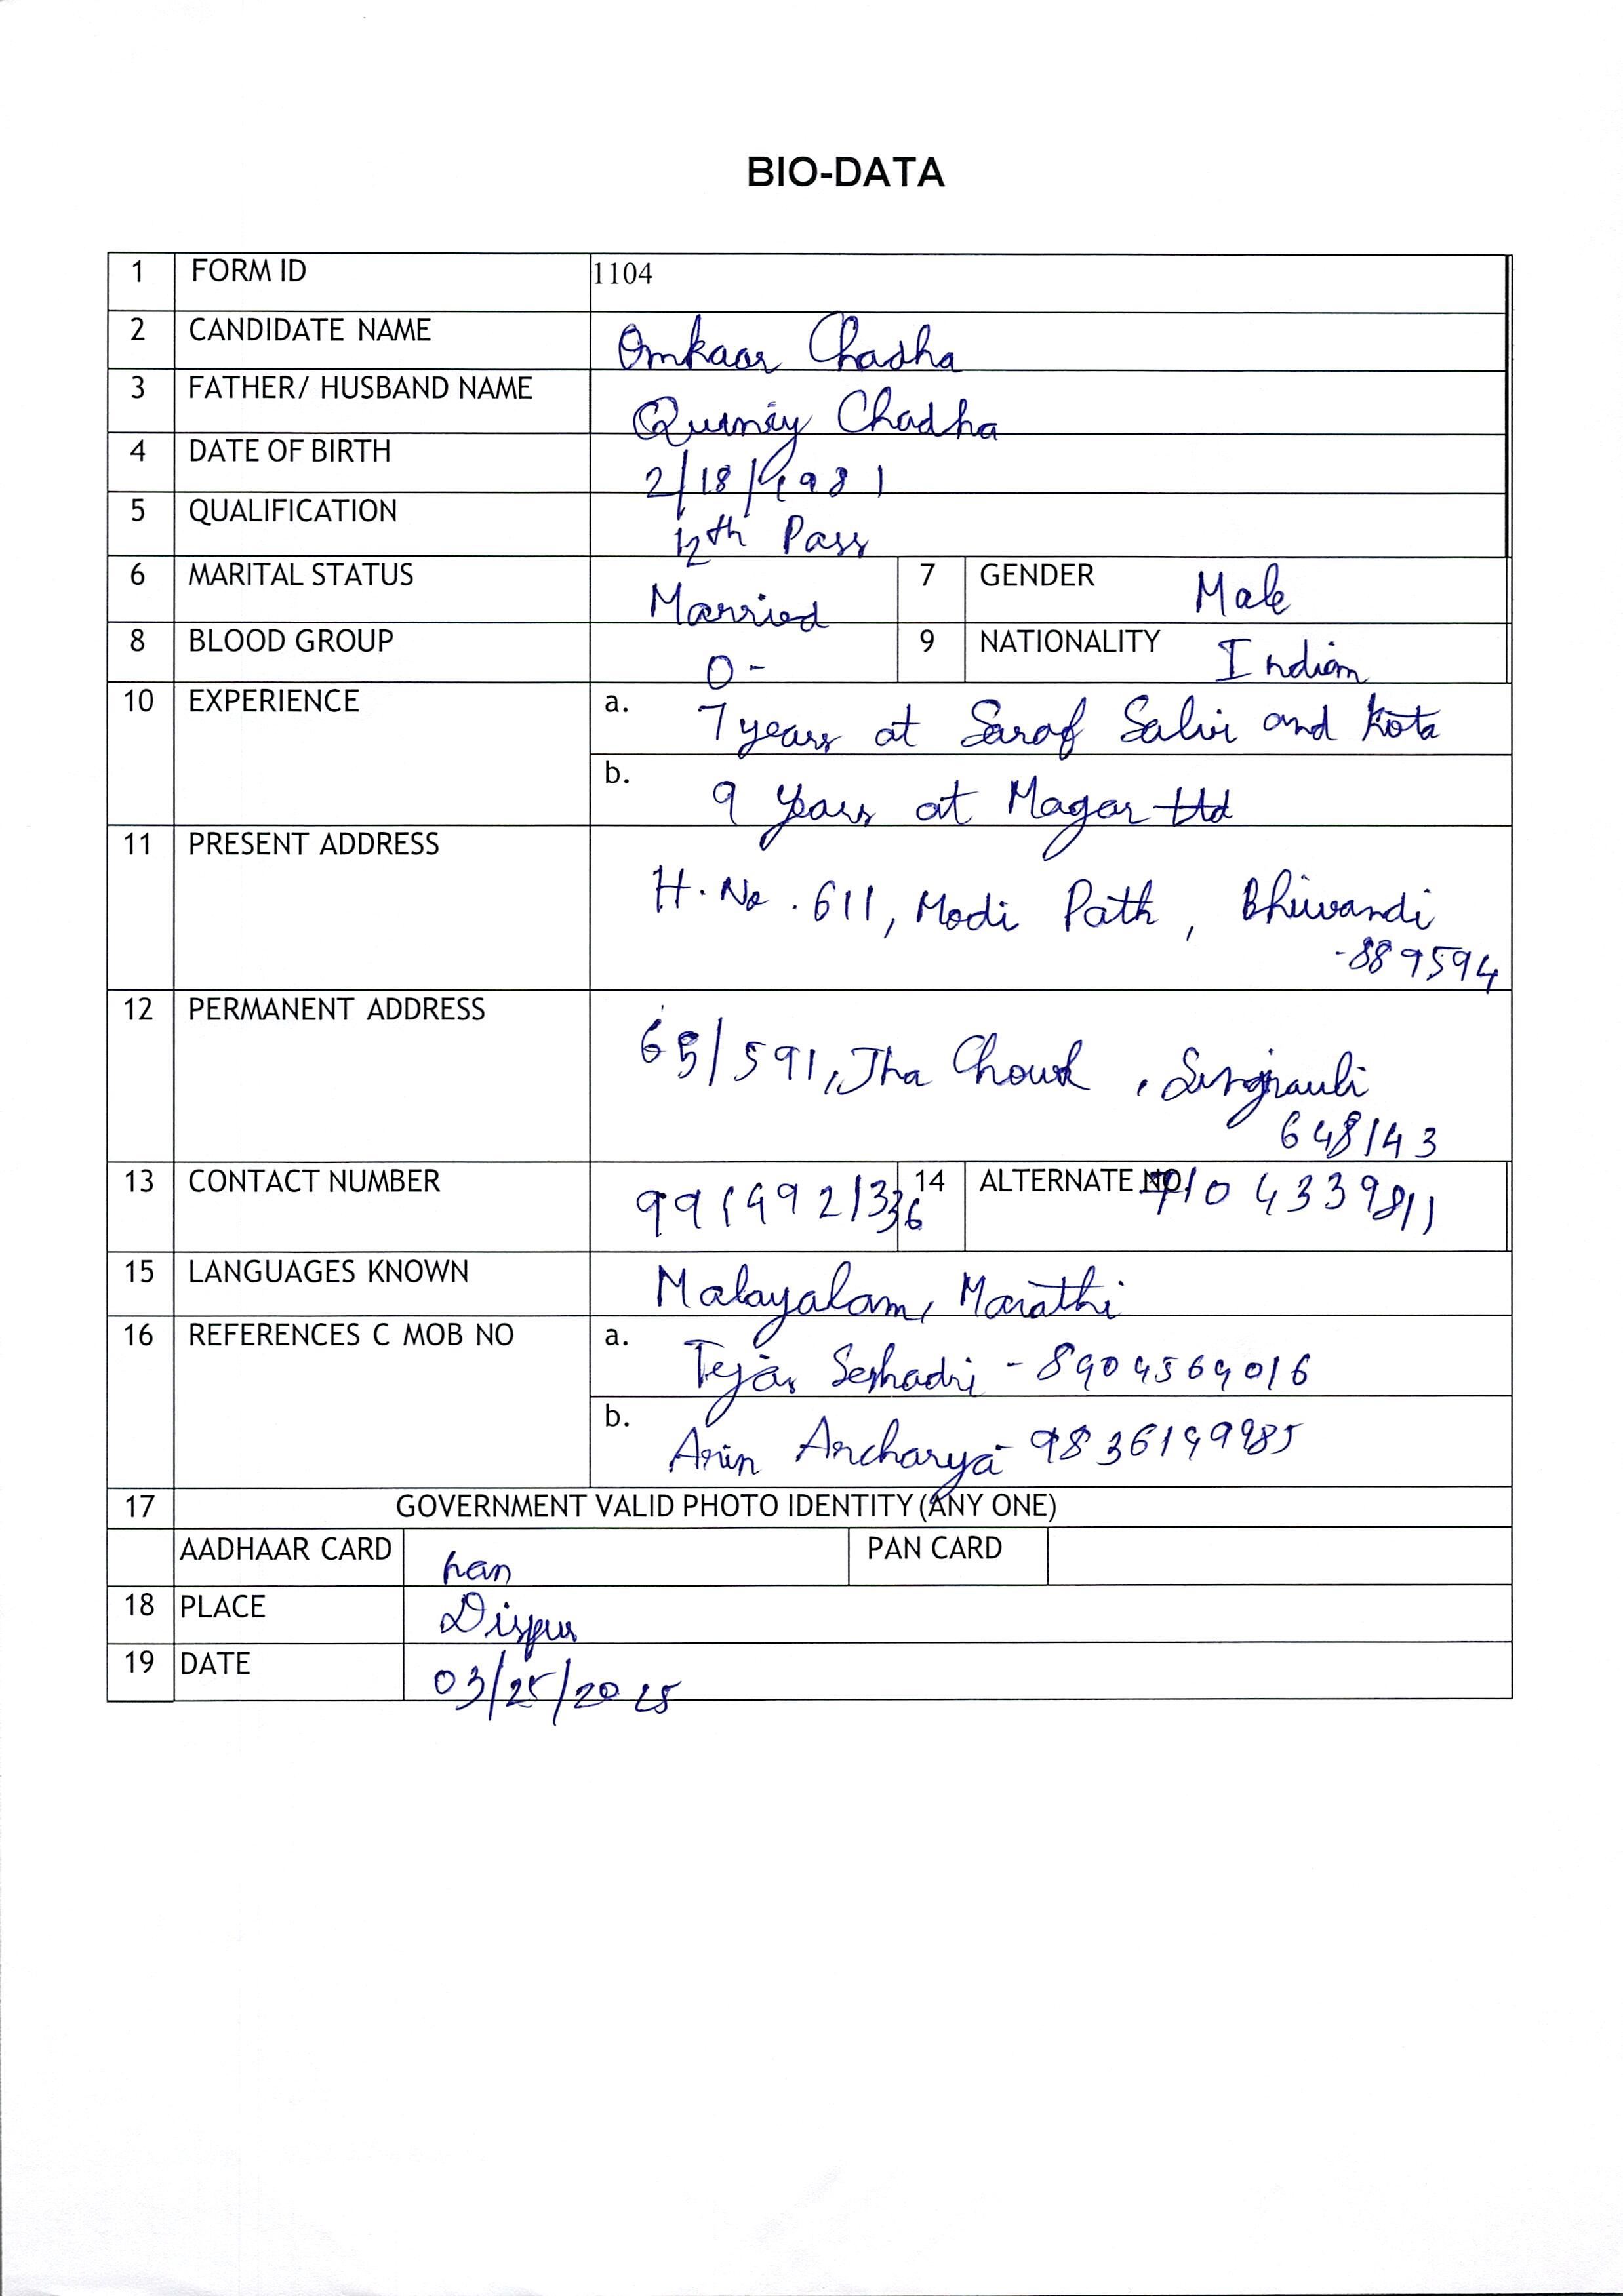 BIO-DATA
1 FORM ID 1104
2 CANDIDATE NAME Omkaar Chadha
3 FATHER/ HUSBAND NAME Chadha
4 DATE OF BIRTH 2/18/1981
5 QUALIFICATION 12th Pass
6 MARITAL STATUS Married 7 GENDER Male
8 BLOOD GROUP O- 9 NATIONALITY Indian
10 EXPERIENCE a. 7 years at Saraf Salvi and Kota
b. 9 years at Magar Ltd
11 PRESENT ADDRESS H.No.611, Modi Path, Bhiwandi
-889594
12 PERMANENT ADDRESS 65/591, Jha Chowk, Singrauli
648143
13 CONTACT NUMBER 14 ALTERNATE NO.
15 LANGUAGES KNOWN Malayalam, Marathi
16 REFERENCES C MOB NO a. Tejas Seshadri -
b. Ancharya - 
17 GOVERNMENT VALID PHOTO IDENTITY (ANY ONE)
AADHAAR CARD PAN CARD
18 PLACE Dispur
19 DATE 03/25/2025